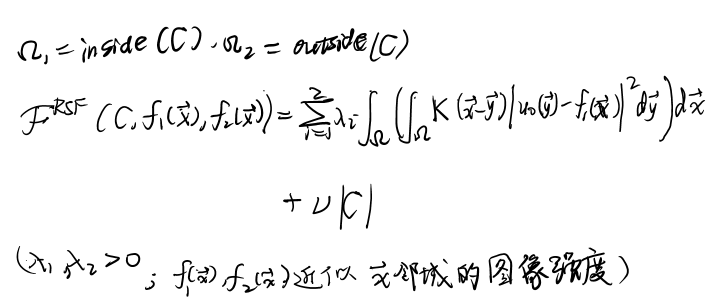 Ω₁ = inside(C), Ω₂ = outside(C)
F^RSF (C, f₁(x⃗), f₂(x⃗)) = ∑_{i=1}^{2} λᵢ ∫_Ω (∫_Ω K(x⃗-y⃗)|u₀(y⃗)-fᵢ(x⃗)|² dy⃗) dx⃗
+ ν|C|
(λ₁, λ₂ > 0; f₁(x⃗), f₂(x⃗)近似 x⃗ 邻域的图像强度)